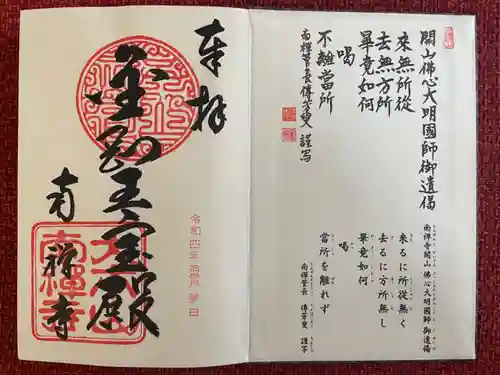 開山佛心大明國師御遺偈
來無所從
去無方所
畢竟如何
喝
不離當所
南禅管長傳芳叟 謹写
南禅寺開山 佛心大明國師 御遺偈
來るに所從無く
去るに方所無し
畢竟如何
喝
當所を離れず
南禅管長 傳芳叟 謹写
奉拝
金剛王宝殿
南禅寺
令和四年
日
南禅寺